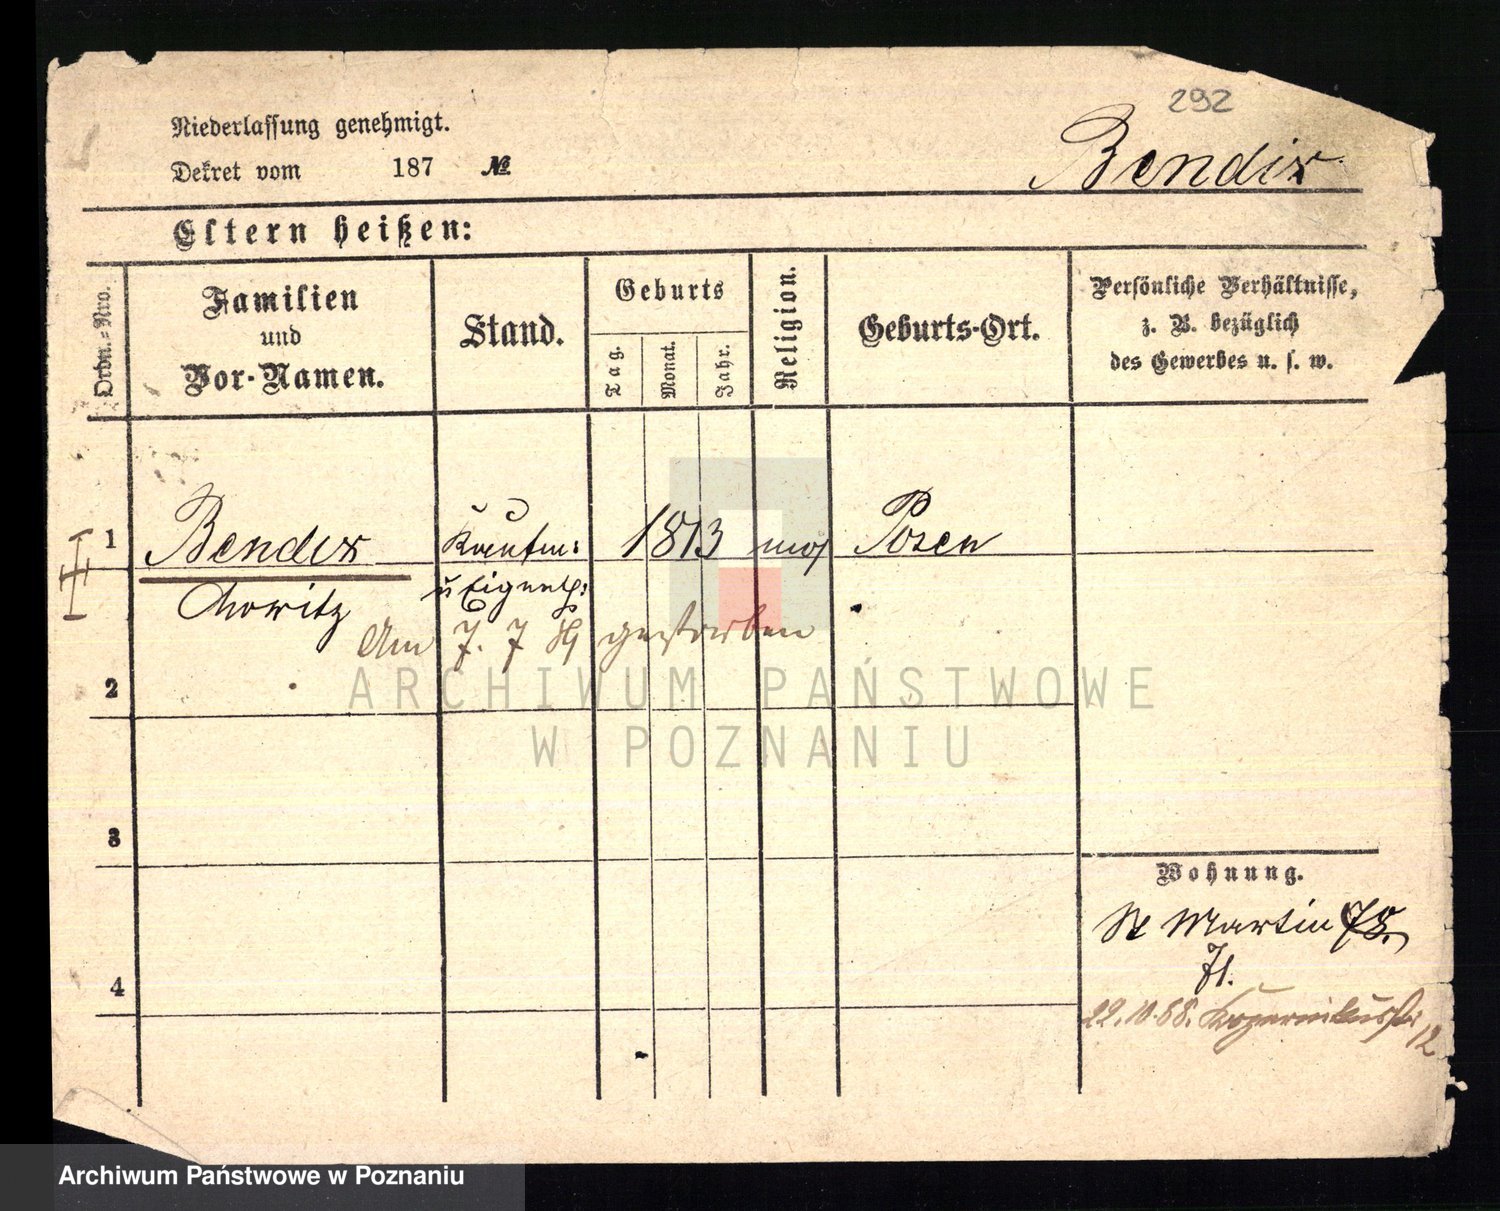 292
Niederlassung genehmigt.
Bendix
Dekret vom 187 №
Eltern heißen:
Ordn.-Nro.
Familien
und
Vor-Namen.
Stand.
Geburts
Tag.
Monat.
Jahr.
Religion.
Geburts-Ort.
Persönliche Verhältnisse,
z. B. bezüglich
des Gewerbes u. s. w.
1 Bendix Kaufm: 1813 mos Posen
Moritz u Eigenth:
Am 7. 7 gestorben
2
ARCHIWUM PAŃSTWOWE
W POZNANIU
3
Wohnung.
St Martin 78.
71.
4
22.10.68. Kopernikusstr:
12
Archiwum Państwowe w Poznaniu